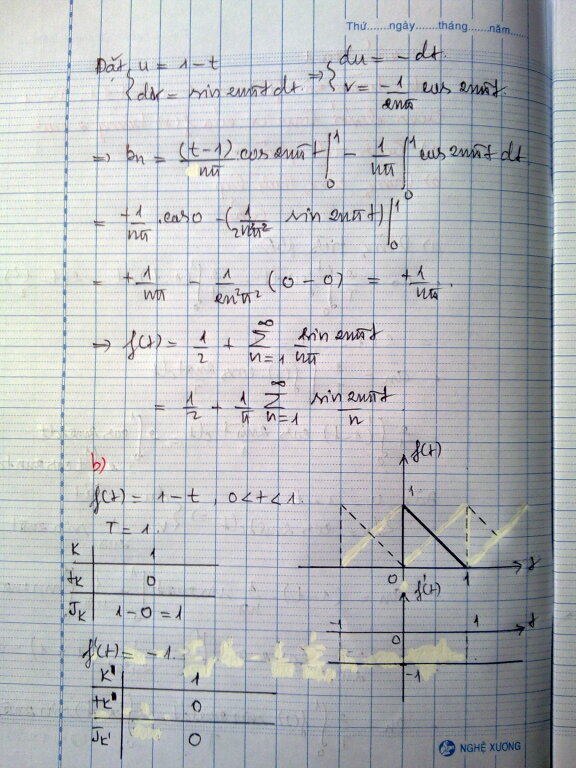 Thứ.......ngày.......tháng.......năm.......
Đặt { u = 1 - t
dv = sin 2nπt dt
⇒ { du = - dt
v = -1/2nπ cos 2nπt
⇒ bn = (t-1)/nπ . cos 2nπt |₀¹ - 1/nπ ∫₀¹ cos 2nπt dt
= +1/nπ . cos0 - (1/2n²π² sin 2nπt) |₀¹
= +1/nπ - 1/2n²π² (0 - 0) = +1/nπ .
⇒ f(t) = 1/2 + ∑ₙ₌₁^∞ sin 2nπt/nπ
= 1/2 + 1/π ∑ₙ₌₁^∞ sin 2nπt/n
b)
f(t) = 1 - t , 0 < t < 1
T = 1
K 1
tK 0
JK 1 - 0 = 1
f'(t) = -1
K' 1
tK' 0
JK' 0
f(t)
1
0 1 t
f'(t)
-1 0 1 t
-1
NGHỆ XƯƠNG